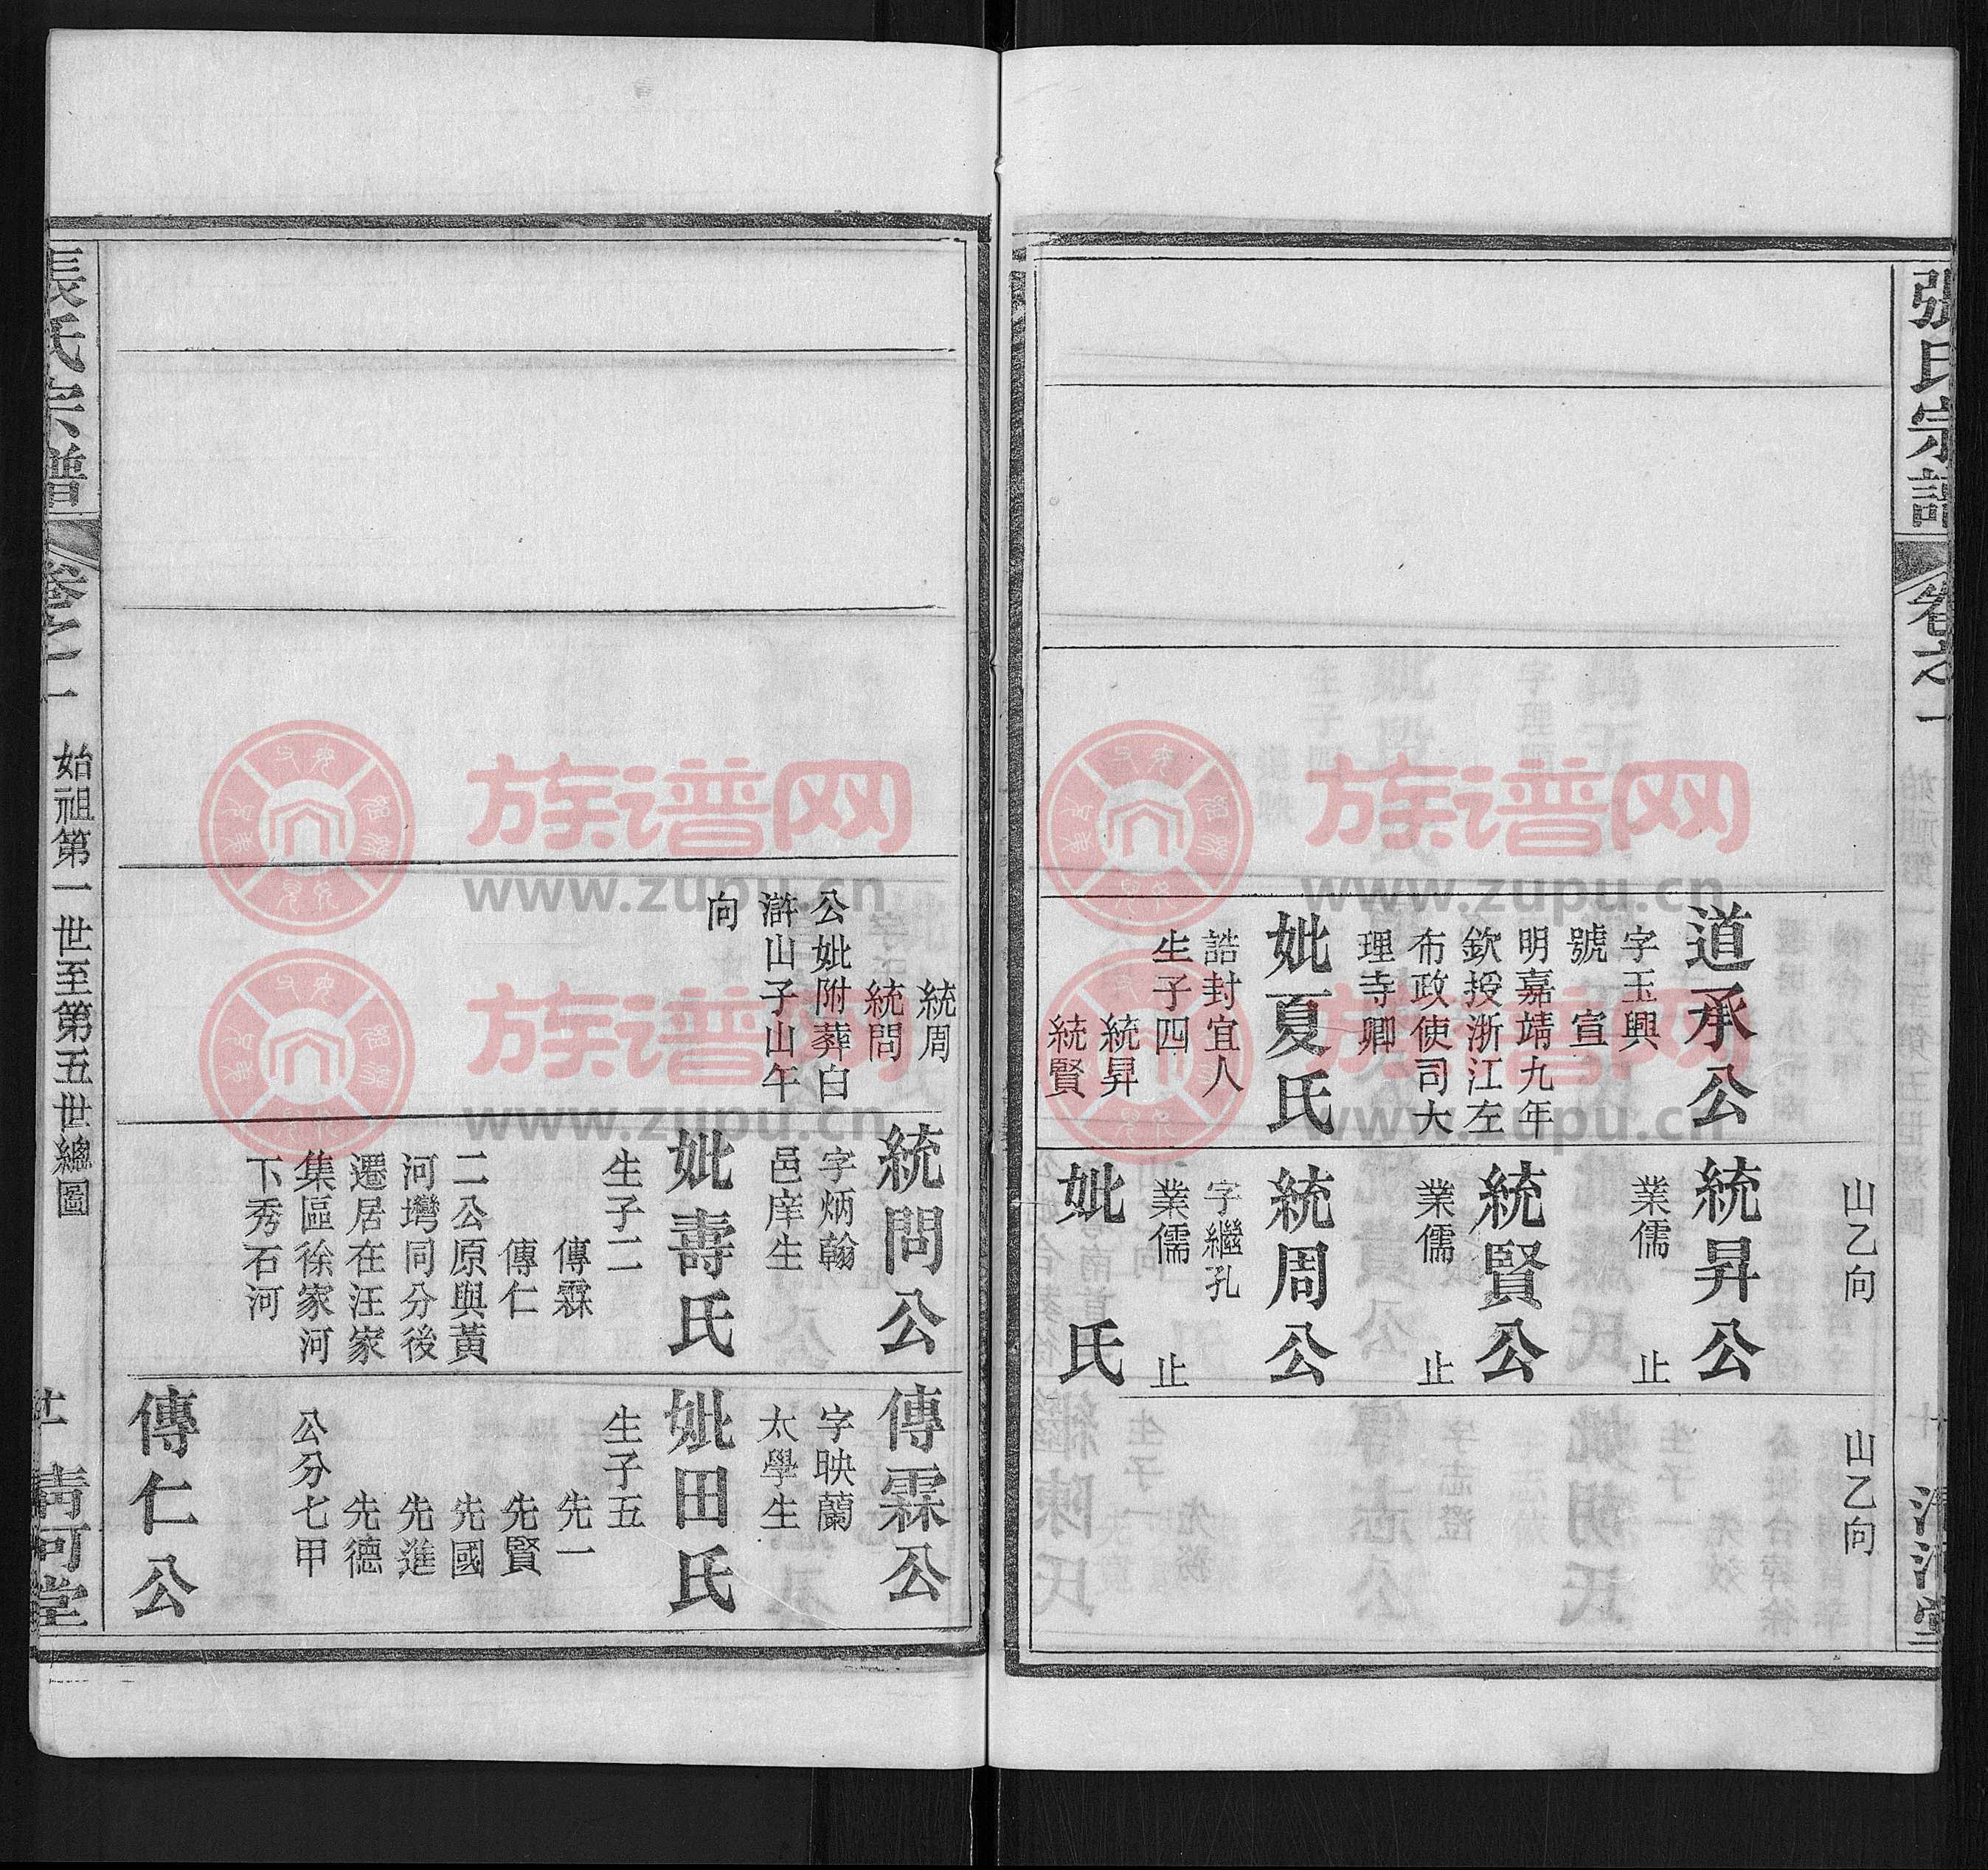 張氏宗譜
卷之一
道承公
字玉興
號宣
明嘉靖九年
欽授浙江左
布政使司大
理寺卿
妣夏氏
誥封宜人
生子四
統昇
統賢
山乙向
統昇公
業儒
止
統賢公
業儒
止
統周公
字繼孔
業儒
止
妣
氏
山乙向
統周
統問
公妣附葬白
滸山子山午
向
統問公
字炳翰
邑庠生
妣壽氏
生子二
傳霖
傳仁
二公原與黃
河灣同分後
遷居在汪家
集區徐家河
下秀石河
傳霖公
字映蘭
太學生
妣田氏
生子五
先一
先賢
先國
先進
先德
公分七甲
傳仁公
張氏宗譜
卷之一
始祖第一世至第五世總圖
清河堂
族谱网
www.zupu.cn
族谱网
www.zupu.cn
族谱网
www.zupu.cn
族谱网
www.zupu.cn